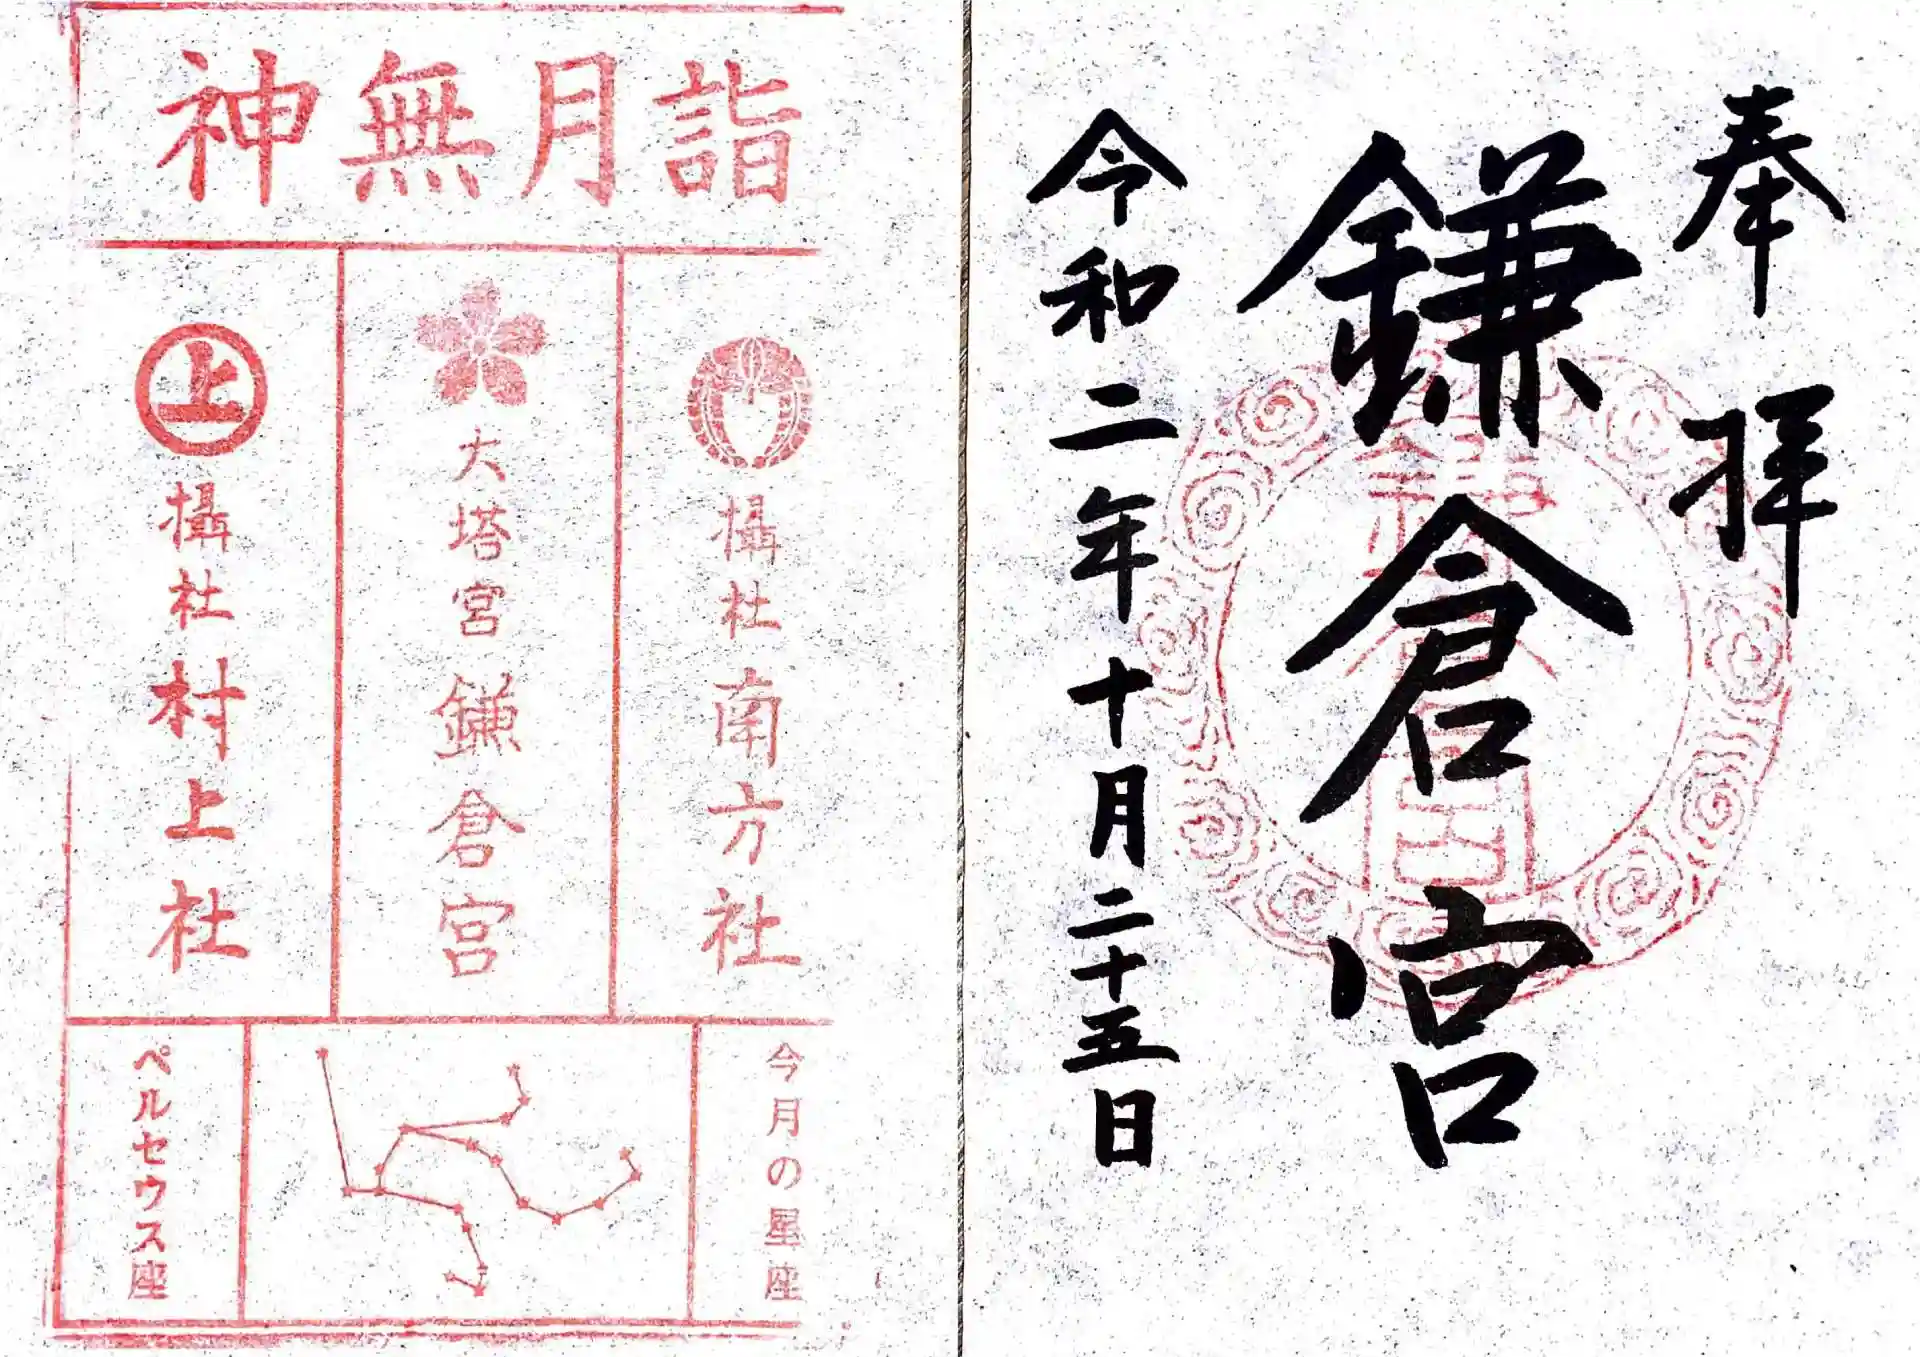 奉拝
鎌倉宮
令和二年十月二十五日
神無月詣
攝社南方社
大塔宮鎌倉宮
上
攝社村上社
今月の星座
ペルセウス座